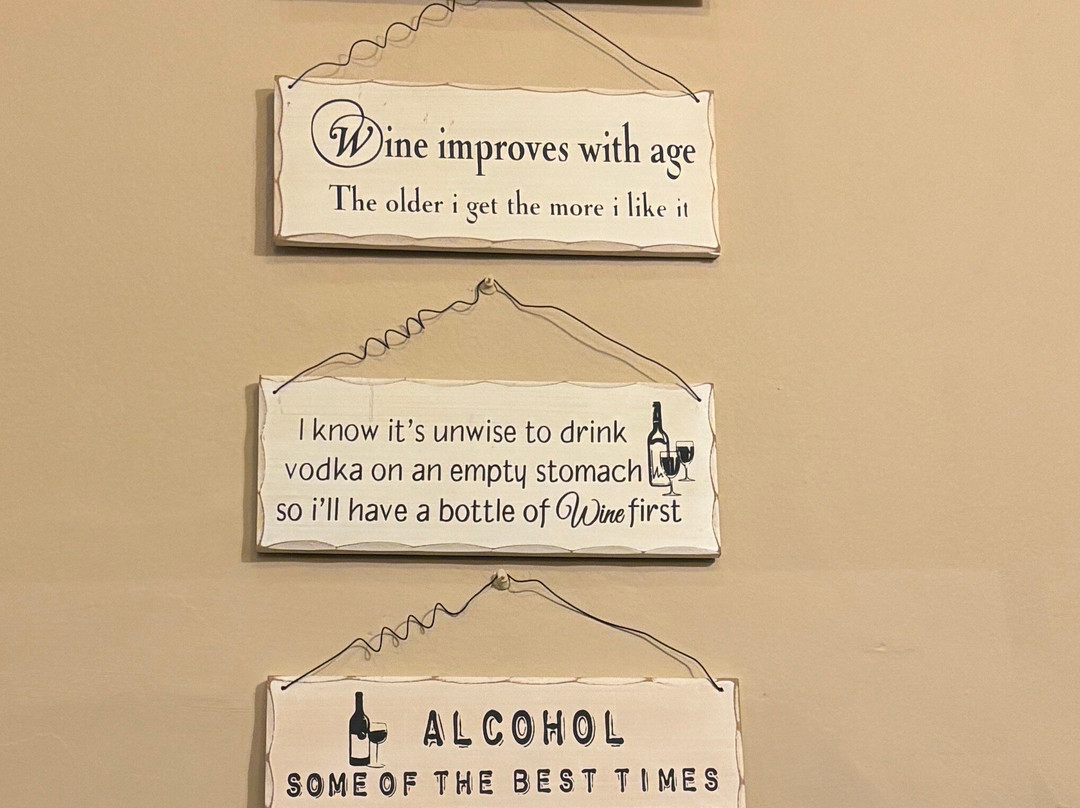 Wine improves with age
The older i get the more i like it
I know it's unwise to drink
vodka on an empty stomach
so i'll have a bottle of Wine first
ALCOHOL
SOME OF THE BEST TIMES